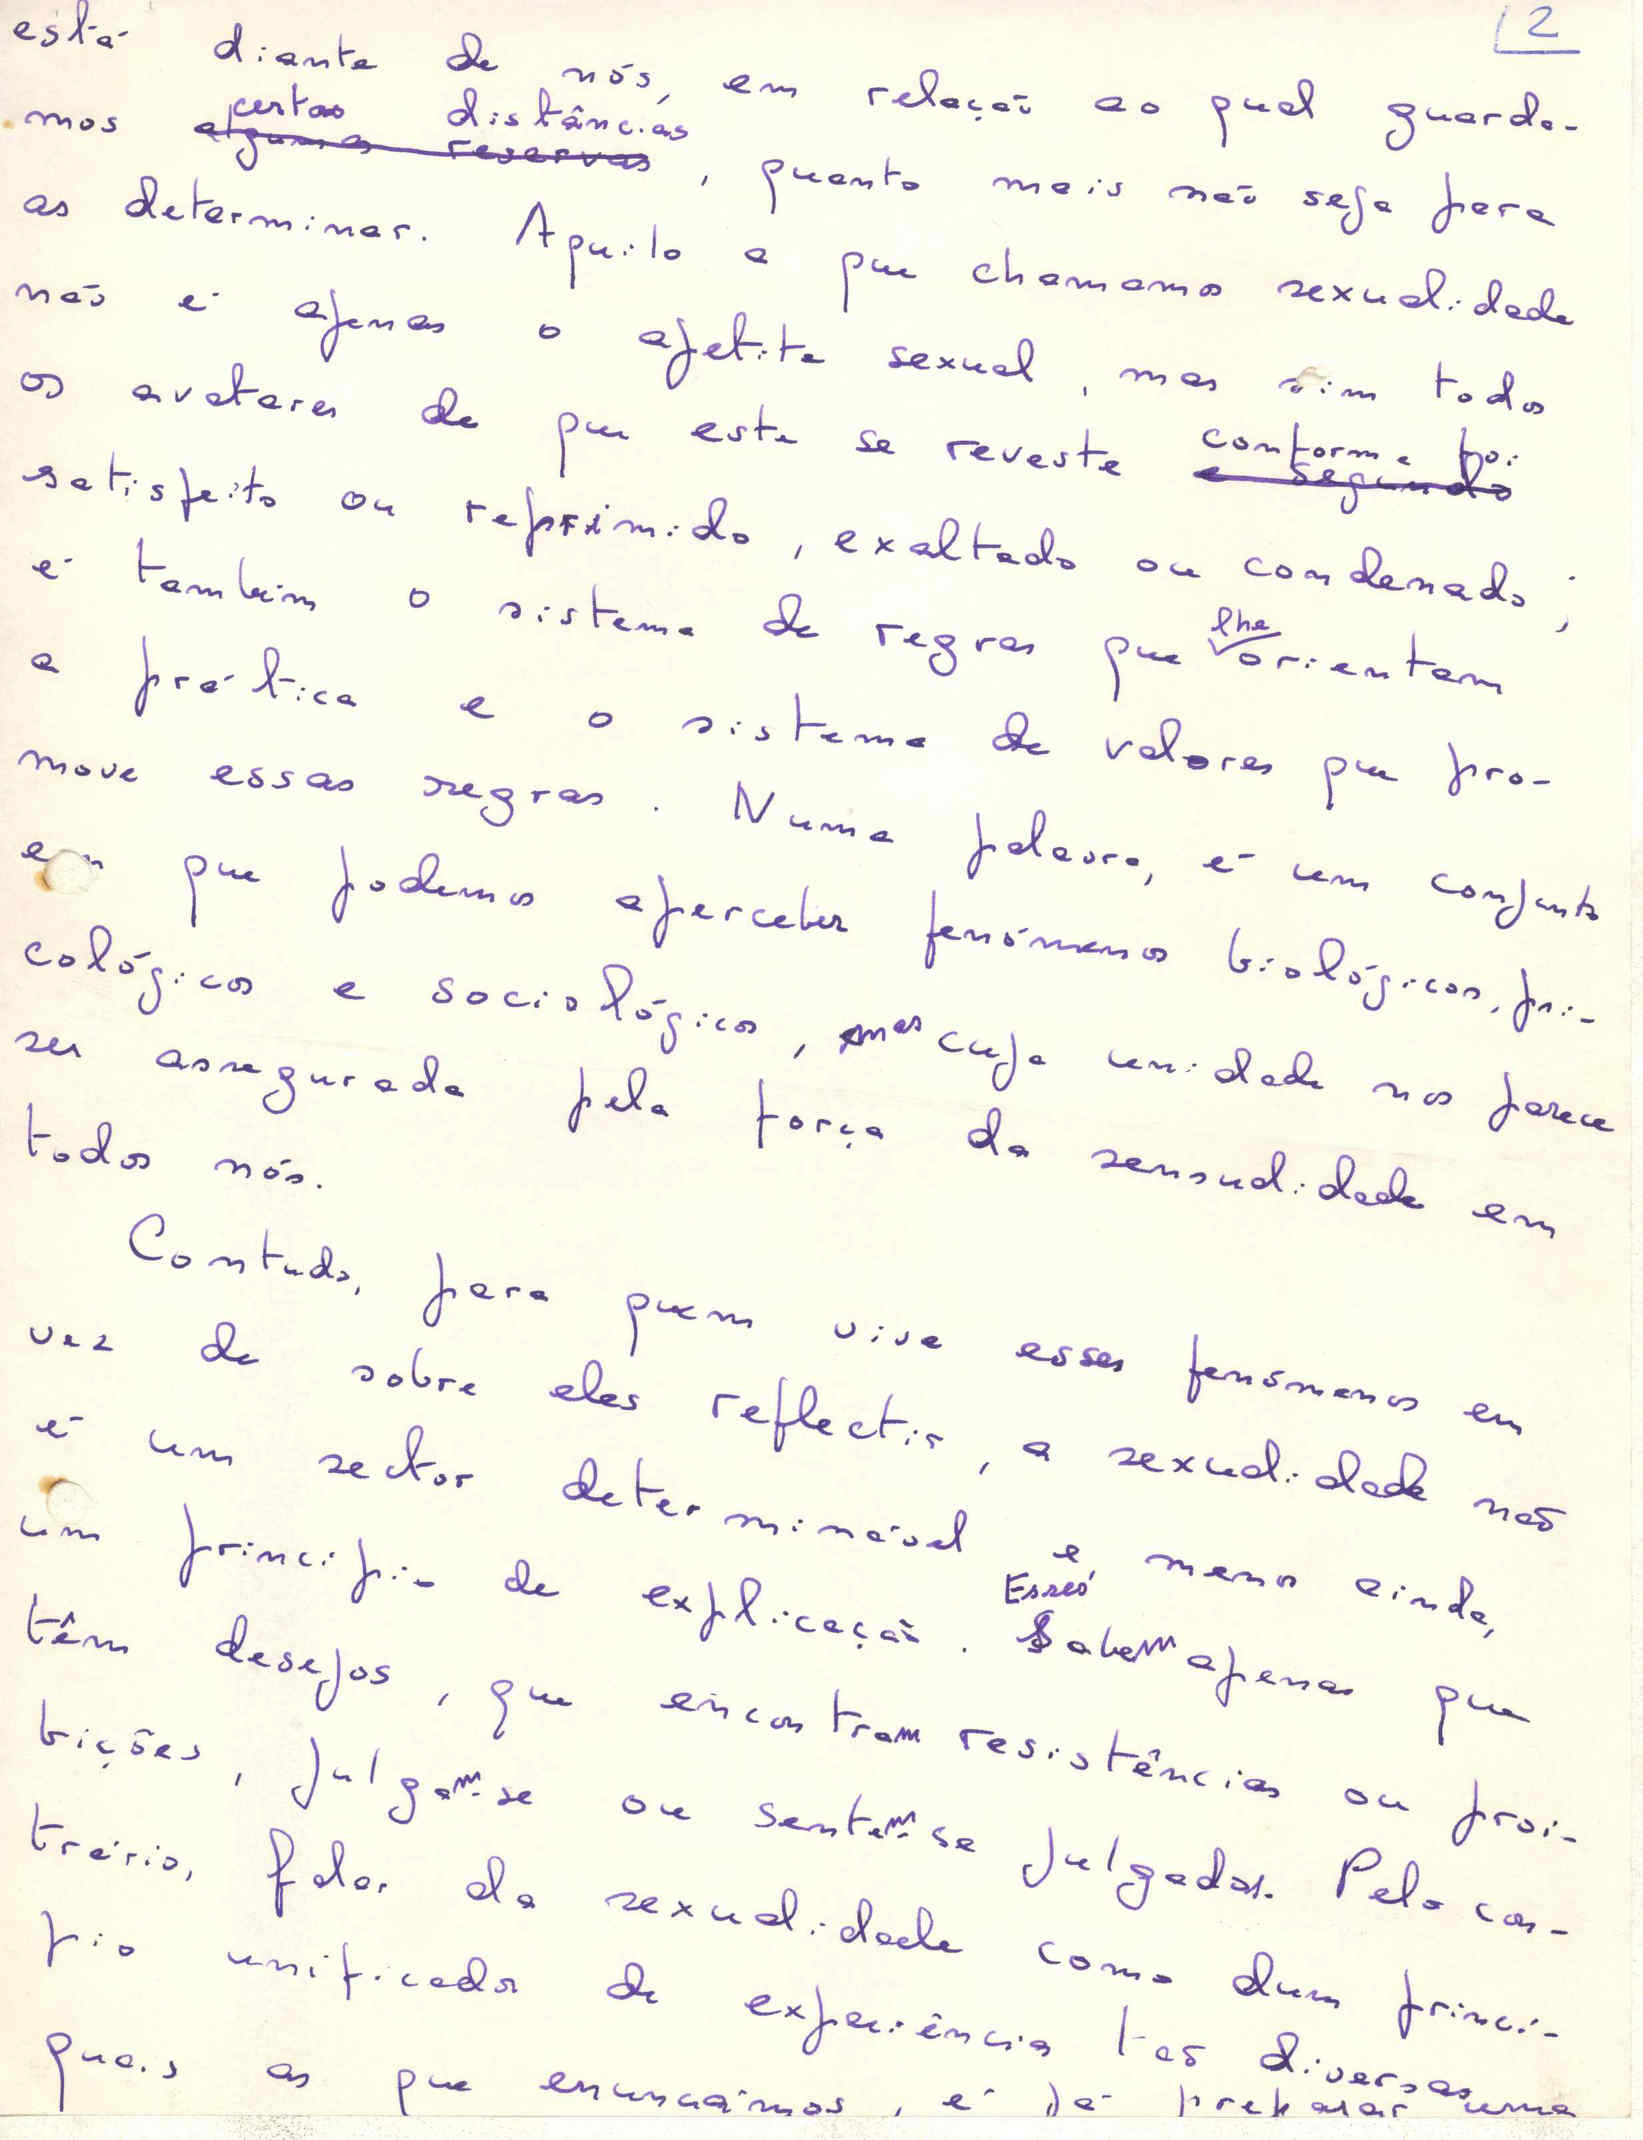 2
está diante de nós, em relação ao qual guarda-
certas distâncias
mos algumas reservas, quanto mais não seja para
as determinar. Aquilo a que chamamos sexualidade
não é apenas o apetite sexual, mas sim todos
os avatares de que este se reveste conforme foi
e segundo
satisfeito ou reprimido, exaltado ou condenado;
é também o sistema de regras que lhe orientam
a prática e o sistema de valores que pro-
move essas regras. Numa palavra, é um conjunto
em que podemos aperceber fenómenos biológicos, psi-
cológicos e sociológicos, mas cuja unidade nos parece
ser assegurada pela força da sensualidade em
todos nós.
Contudo, para quem vive esses fenómenos em
vez de sobre eles reflectir, a sexualidade não
é um sector determinável e, menos ainda,
um princípio de explicação. Esses Sabem apenas que
têm desejos, que encontram resistências ou proi-
bições, julgam-se ou sentem-se julgados. Pelo con-
trário, falar da sexualidade como dum princí-
pio unificador de experiências tão diversas
quais as que enunciámos, é já preparar uma